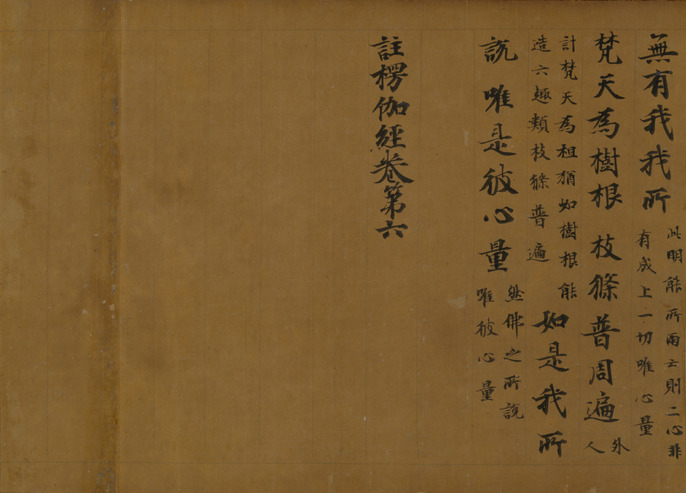 無有我我所 此明能所兩亡則二心非
有成上一切唯心量
梵天為樹根 枝條普周遍 外
人
計梵天為祖猶如樹根能
造六趣類枝條普遍
如是我所
說 唯是彼心量 然佛之所說
唯彼心量
註楞伽經卷第六